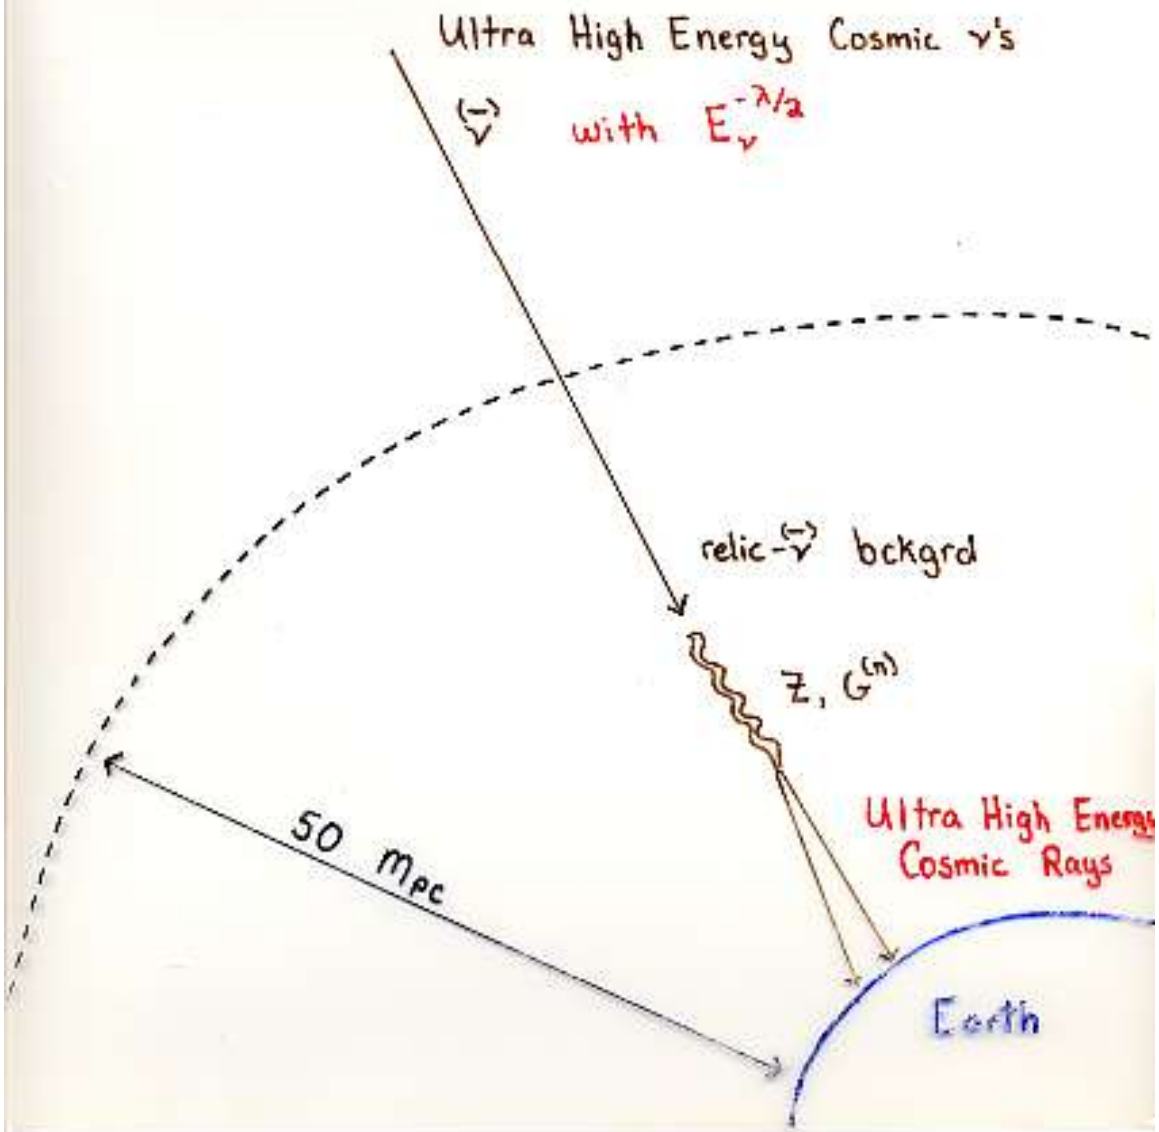 Ultra High Energy Cosmic ν's
(-)ν with E_ν^{-λ/2}
relic-(-)ν bckgrd
Z, G^{(n)}
50 Mpc
Ultra High Energy
Cosmic Rays
Earth